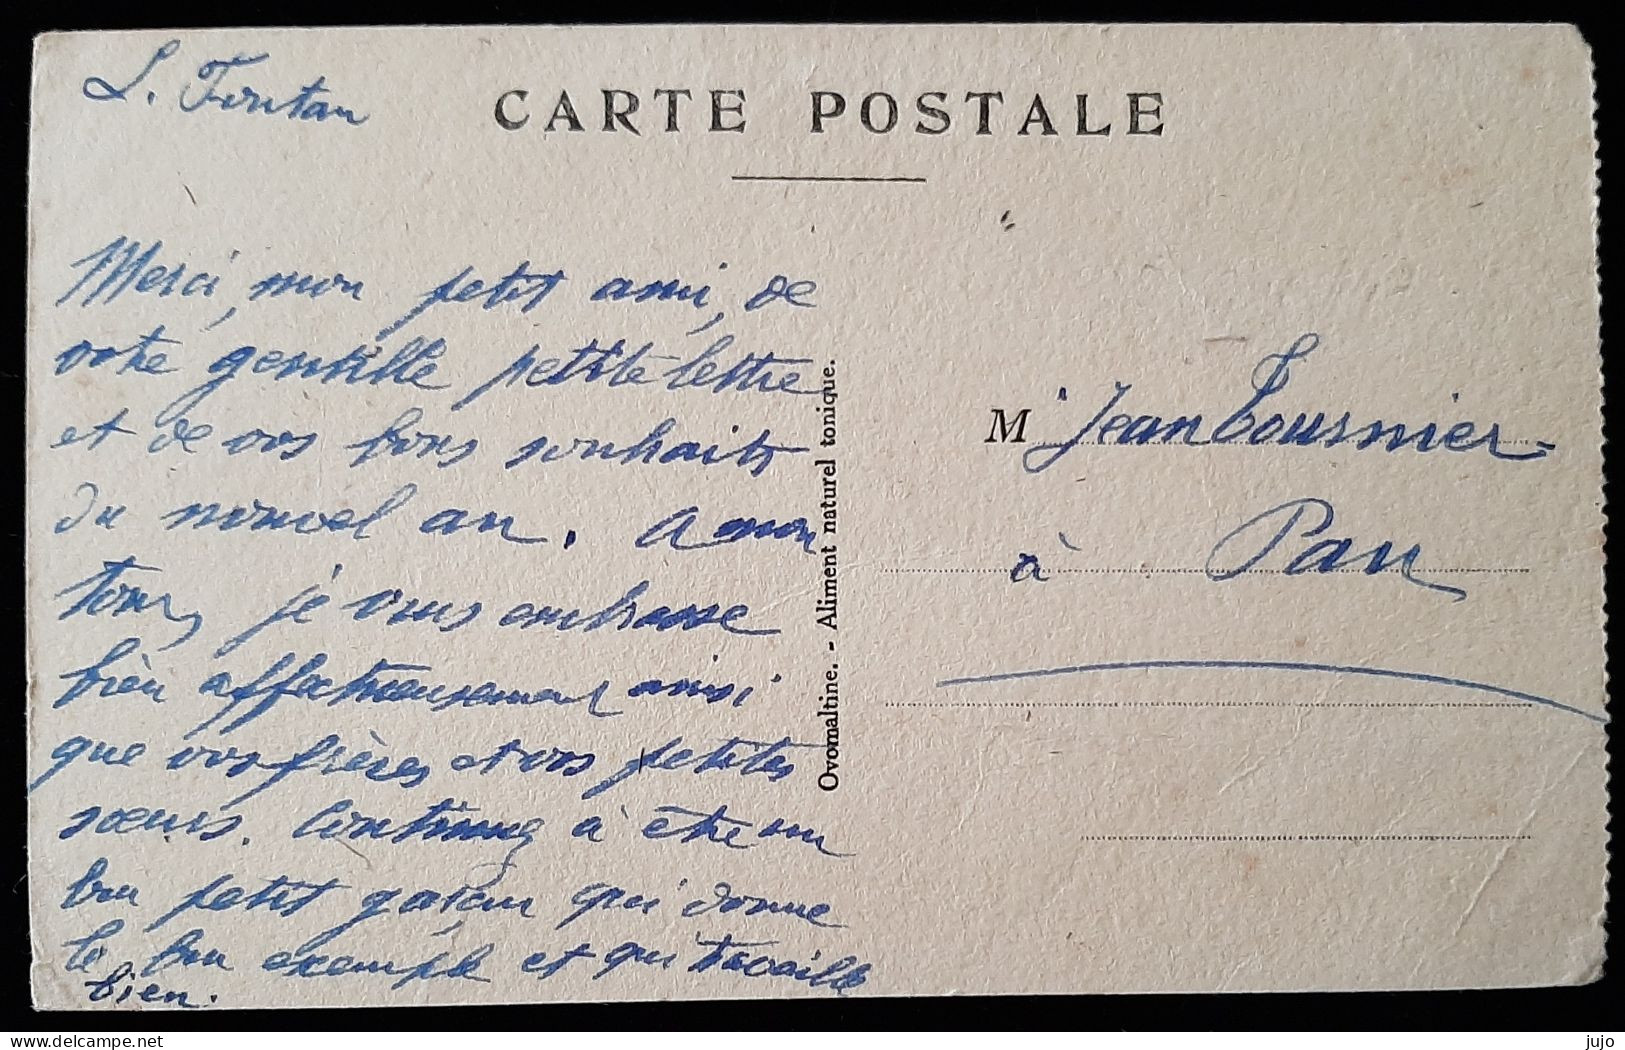 L. Fontan
CARTE POSTALE
Merci, mon petit ami, de
votre gentille petite lettre
et de vos bons souhaits
du nouvel an. A mon
tour, je vous embrasse
bien affectueusement ainsi
que vos frères et vos petites
sœurs. Continuez à être un
bon petit garçon qui donne
le bon exemple et qui travaille
bien.
Ovomaltine. - Aliment naturel tonique.
M Jean Tournier
à Pau
delcampe.net
jujo